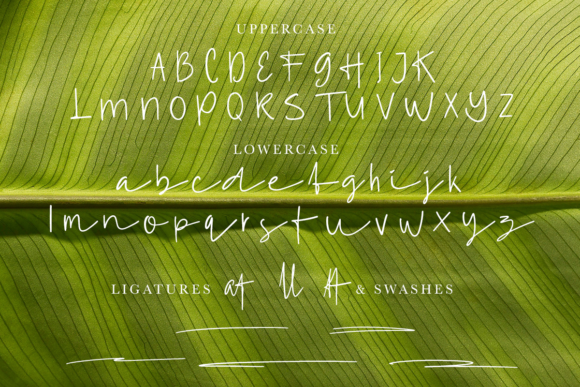 UPPERCASE
A B C D E F G H I J K
L m n O P Q R S T U V W X Y Z
LOWERCASE
a b c d e f g h i j k
l m n o p q r s t u v w x y z
LIGATURES at ll A & SWASHES